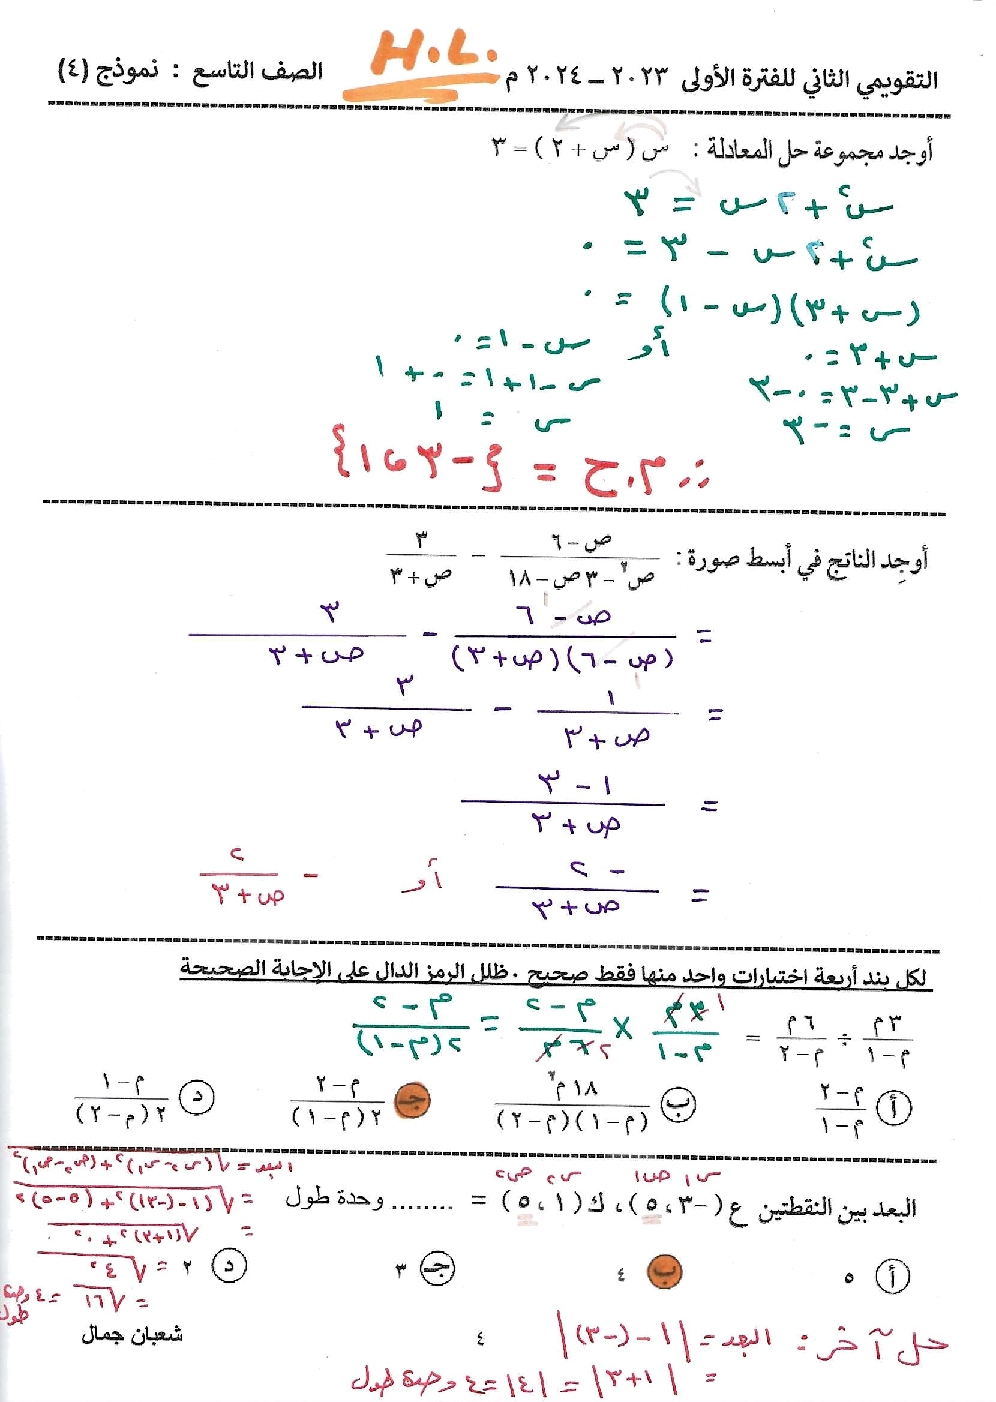 H.L.
التقويمي الثاني للفترة الأولى ٢٠٢٣ – ٢٠٢٤ م الصف التاسع : نموذج (٤)
أوجد مجموعة حل المعادلة : س ( س + ٢ ) = ٣
س² + ٢ س = ٣
س² + ٢ س – ٣ = ٠
(س + ٣)(س – ١) = ٠
س + ٣ = ٠ أو س – ١ = ٠
س + ٣ – ٣ = ٠ – ٣ س – ١ + ١ = ٠ + ١
س = –٣ س = ١
∴ م.ح = {–٣ ، ١}
أوجد الناتج في أبسط صورة : (ص – ٦)/(ص² – ٣ ص – ١٨) – ٣/(ص + ٣)
= (ص – ٦)/((ص – ٦)(ص + ٣)) – ٣/(ص + ٣)
= ١/(ص + ٣) – ٣/(ص + ٣)
= (١ – ٣)/(ص + ٣)
= –٢/(ص + ٣) أو – ٢/(ص + ٣)
لكل بند أربعة اختيارات واحد منها فقط صحيح . ظلل الرمز الدال على الإجابة الصحيحة
٣م/(م – ١) ÷ ٦م/(م – ٢) = ٣م/(م – ١) × (م – ٢)/٦م = (م – ٢)/٢(م – ١)
أ (م – ٢)/(م – ١) ب ١٨م²/((م – ١)(م – ٢)) جـ (م – ٢)/٢(م – ١) د (م – ١)/٢(م – ٢)
البعد = √(س٢ – س١)² + (ص٢ – ص١)²
س١ ص١ س٢ ص٢
البعد بين النقطتين ع (–٣ ، ٥) ، ك (١ ، ٥) = ........ وحدة طول
= √(١ – (–٣))² + (٥ – ٥)²
= √(١ + ٣)² + ٠²
أ ٥ ب ٤ جـ ٣ د ٢
= √٤²
= √١٦ = ٤ وحدة طول
حل آخر : البعد = |١ – (–٣)|
= |١ + ٣| = |٤| = ٤ وحدة طول
٤
شعبان جمال